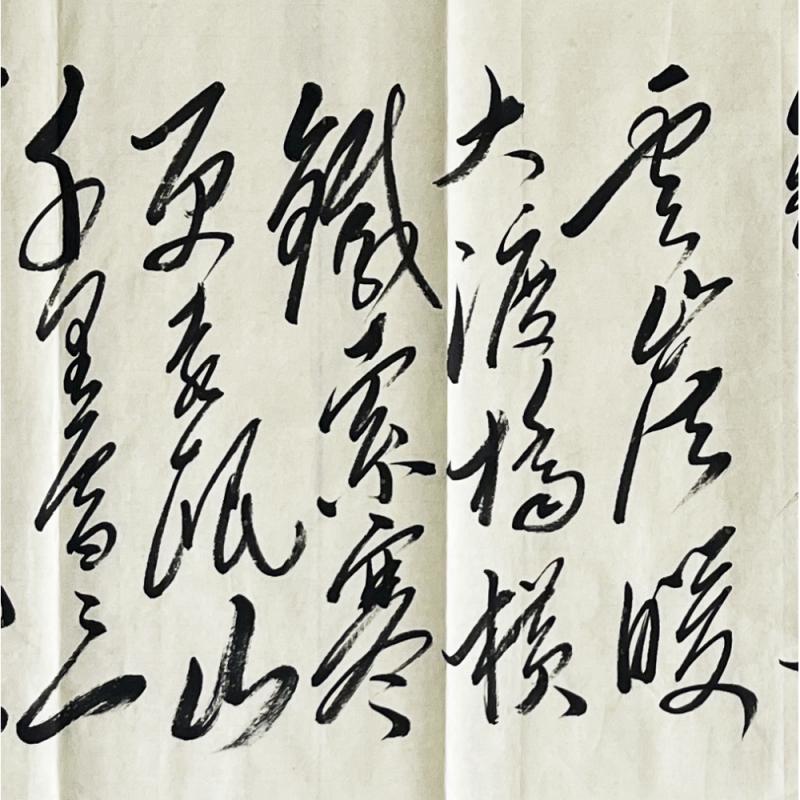 雲崖暖
大渡橋橫
鐵索寒
更喜岷山
千里雪三